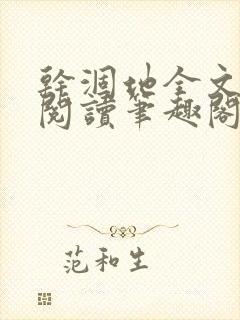 幹涸地全文
閱讀筆趣閣
范和生